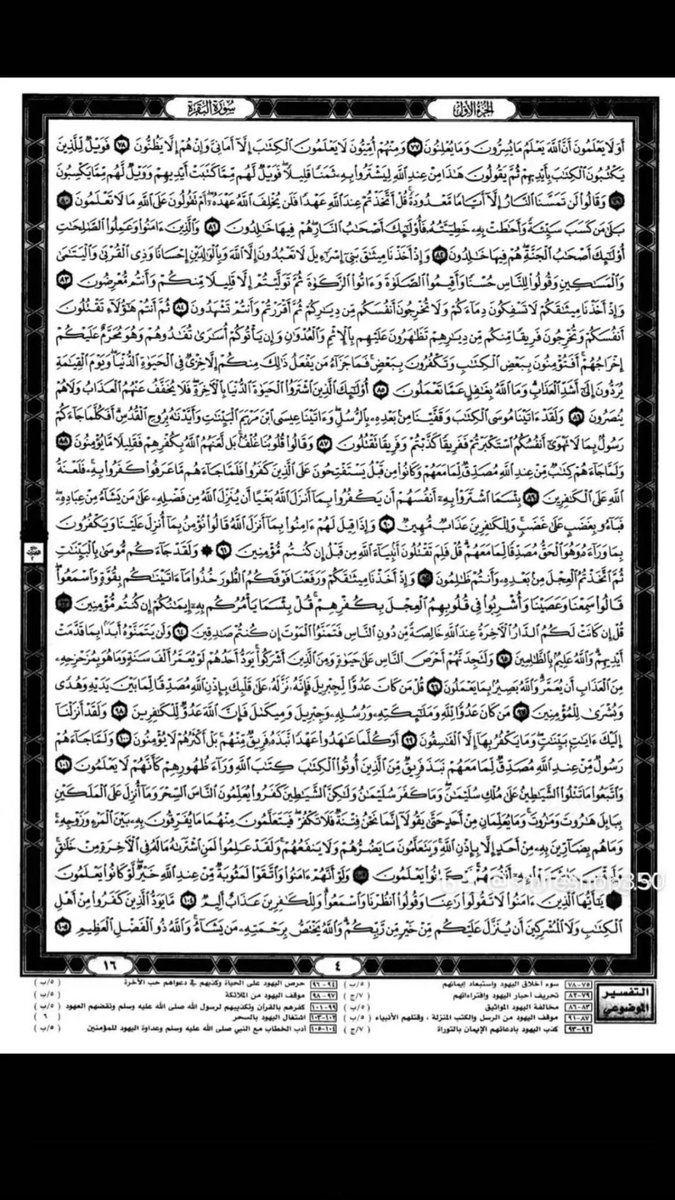 الجزء الأول
سورة البقرة
أَوَلَا يَعْلَمُونَ أَنَّ اللَّهَ يَعْلَمُ مَا يُسِرُّونَ وَمَا يُعْلِنُونَ ٧٧ وَمِنْهُمْ أُمِّيُّونَ لَا يَعْلَمُونَ الْكِتَٰبَ إِلَّآ أَمَانِيَّ وَإِنْ هُمْ إِلَّا يَظُنُّونَ ٧٨ فَوَيْلٌ لِّلَّذِينَ
يَكْتُبُونَ الْكِتَٰبَ بِأَيْدِيهِمْ ثُمَّ يَقُولُونَ هَٰذَا مِنْ عِندِ اللَّهِ لِيَشْتَرُوا بِهِ ثَمَنًا قَلِيلًا ۖ فَوَيْلٌ لَّهُم مِّمَّا كَتَبَتْ أَيْدِيهِمْ وَوَيْلٌ لَّهُم مِّمَّا يَكْسِبُونَ
٧٩ وَقَالُوا لَن تَمَسَّنَا النَّارُ إِلَّآ أَيَّامًا مَّعْدُودَةً ۚ قُلْ أَتَّخَذْتُمْ عِندَ اللَّهِ عَهْدًا فَلَن يُخْلِفَ اللَّهُ عَهْدَهُ ۖ أَمْ تَقُولُونَ عَلَى اللَّهِ مَا لَا تَعْلَمُونَ ٨٠
بَلَىٰ مَن كَسَبَ سَيِّئَةً وَأَحَٰطَتْ بِهِ خَطِيٓـَٔتُهُ فَأُولَٰٓئِكَ أَصْحَٰبُ النَّارِ ۖ هُمْ فِيهَا خَٰلِدُونَ ٨١ وَالَّذِينَ ءَامَنُوا وَعَمِلُوا الصَّٰلِحَٰتِ
أُولَٰٓئِكَ أَصْحَٰبُ الْجَنَّةِ ۖ هُمْ فِيهَا خَٰلِدُونَ ٨٢ وَإِذْ أَخَذْنَا مِيثَٰقَ بَنِيٓ إِسْرَٰٓءِيلَ لَا تَعْبُدُونَ إِلَّا اللَّهَ وَبِالْوَٰلِدَيْنِ إِحْسَانًا وَذِي الْقُرْبَىٰ وَالْيَتَٰمَىٰ
وَالْمَسَٰكِينِ وَقُولُوا لِلنَّاسِ حُسْنًا وَأَقِيمُوا الصَّلَوٰةَ وَءَاتُوا الزَّكَوٰةَ ثُمَّ تَوَلَّيْتُمْ إِلَّا قَلِيلًا مِّنكُمْ وَأَنتُم مُّعْرِضُونَ ٨٣
وَإِذْ أَخَذْنَا مِيثَٰقَكُمْ لَا تَسْفِكُونَ دِمَآءَكُمْ وَلَا تُخْرِجُونَ أَنفُسَكُم مِّن دِيَٰرِكُمْ ثُمَّ أَقْرَرْتُمْ وَأَنتُمْ تَشْهَدُونَ ٨٤ ثُمَّ أَنتُمْ هَٰٓؤُلَآءِ تَقْتُلُونَ
أَنفُسَكُمْ وَتُخْرِجُونَ فَرِيقًا مِّنكُم مِّن دِيَٰرِهِمْ تَظَٰهَرُونَ عَلَيْهِم بِالْإِثْمِ وَالْعُدْوَٰنِ وَإِن يَأْتُوكُمْ أُسَٰرَىٰ تُفَٰدُوهُمْ وَهُوَ مُحَرَّمٌ عَلَيْكُمْ
إِخْرَاجُهُمْ ۚ أَفَتُؤْمِنُونَ بِبَعْضِ الْكِتَٰبِ وَتَكْفُرُونَ بِبَعْضٍ ۚ فَمَا جَزَآءُ مَن يَفْعَلُ ذَٰلِكَ مِنكُمْ إِلَّا خِزْيٌ فِي الْحَيَوٰةِ الدُّنْيَا ۖ وَيَوْمَ الْقِيَٰمَةِ
يُرَدُّونَ إِلَىٰٓ أَشَدِّ الْعَذَابِ ۗ وَمَا اللَّهُ بِغَٰفِلٍ عَمَّا تَعْمَلُونَ ٨٥ أُولَٰٓئِكَ الَّذِينَ اشْتَرَوُا الْحَيَوٰةَ الدُّنْيَا بِالْآخِرَةِ ۖ فَلَا يُخَفَّفُ عَنْهُمُ الْعَذَابُ وَلَا هُمْ
يُنصَرُونَ ٨٦ وَلَقَدْ ءَاتَيْنَا مُوسَى الْكِتَٰبَ وَقَفَّيْنَا مِن بَعْدِهِ بِالرُّسُلِ ۖ وَءَاتَيْنَا عِيسَى ابْنَ مَرْيَمَ الْبَيِّنَٰتِ وَأَيَّدْنَٰهُ بِرُوحِ الْقُدُسِ ۗ أَفَكُلَّمَا جَآءَكُمْ
رَسُولٌ بِمَا لَا تَهْوَىٰٓ أَنفُسُكُمُ اسْتَكْبَرْتُمْ فَفَرِيقًا كَذَّبْتُمْ وَفَرِيقًا تَقْتُلُونَ ٨٧ وَقَالُوا قُلُوبُنَا غُلْفٌ ۚ بَل لَّعَنَهُمُ اللَّهُ بِكُفْرِهِمْ فَقَلِيلًا مَّا يُؤْمِنُونَ ٨٨
وَلَمَّا جَآءَهُمْ كِتَٰبٌ مِّنْ عِندِ اللَّهِ مُصَدِّقٌ لِّمَا مَعَهُمْ وَكَانُوا مِن قَبْلُ يَسْتَفْتِحُونَ عَلَى الَّذِينَ كَفَرُوا فَلَمَّا جَآءَهُم مَّا عَرَفُوا كَفَرُوا بِهِ ۚ فَلَعْنَةُ
اللَّهِ عَلَى الْكَٰفِرِينَ ٨٩ بِئْسَمَا اشْتَرَوْا بِهِ أَنفُسَهُمْ أَن يَكْفُرُوا بِمَآ أَنزَلَ اللَّهُ بَغْيًا أَن يُنَزِّلَ اللَّهُ مِن فَضْلِهِ عَلَىٰ مَن يَشَآءُ مِنْ عِبَادِهِ ۖ
فَبَآءُو بِغَضَبٍ عَلَىٰ غَضَبٍ ۚ وَلِلْكَٰفِرِينَ عَذَابٌ مُّهِينٌ ٩٠ وَإِذَا قِيلَ لَهُمْ ءَامِنُوا بِمَآ أَنزَلَ اللَّهُ قَالُوا نُؤْمِنُ بِمَآ أُنزِلَ عَلَيْنَا وَيَكْفُرُونَ
بِمَا وَرَآءَهُ وَهُوَ الْحَقُّ مُصَدِّقًا لِّمَا مَعَهُمْ ۗ قُلْ فَلِمَ تَقْتُلُونَ أَنبِيَآءَ اللَّهِ مِن قَبْلُ إِن كُنتُم مُّؤْمِنِينَ ٩١ ۞ وَلَقَدْ جَآءَكُم مُّوسَىٰ بِالْبَيِّنَٰتِ
ثُمَّ اتَّخَذْتُمُ الْعِجْلَ مِن بَعْدِهِ وَأَنتُمْ ظَٰلِمُونَ ٩٢ وَإِذْ أَخَذْنَا مِيثَٰقَكُمْ وَرَفَعْنَا فَوْقَكُمُ الطُّورَ خُذُوا مَآ ءَاتَيْنَٰكُم بِقُوَّةٍ وَاسْمَعُوا ۖ
قَالُوا سَمِعْنَا وَعَصَيْنَا وَأُشْرِبُوا فِي قُلُوبِهِمُ الْعِجْلَ بِكُفْرِهِمْ ۚ قُلْ بِئْسَمَا يَأْمُرُكُم بِهِ إِيمَٰنُكُمْ إِن كُنتُم مُّؤْمِنِينَ ٩٣
قُلْ إِن كَانَتْ لَكُمُ الدَّارُ الْآخِرَةُ عِندَ اللَّهِ خَالِصَةً مِّن دُونِ النَّاسِ فَتَمَنَّوُا الْمَوْتَ إِن كُنتُمْ صَٰدِقِينَ ٩٤ وَلَن يَتَمَنَّوْهُ أَبَدًا بِمَا قَدَّمَتْ
أَيْدِيهِمْ ۗ وَاللَّهُ عَلِيمٌ بِالظَّٰلِمِينَ ٩٥ وَلَتَجِدَنَّهُمْ أَحْرَصَ النَّاسِ عَلَىٰ حَيَوٰةٍ وَمِنَ الَّذِينَ أَشْرَكُوا ۚ يَوَدُّ أَحَدُهُمْ لَوْ يُعَمَّرُ أَلْفَ سَنَةٍ وَمَا هُوَ بِمُزَحْزِحِهِ
مِنَ الْعَذَابِ أَن يُعَمَّرَ ۗ وَاللَّهُ بَصِيرٌ بِمَا يَعْمَلُونَ ٩٦ قُلْ مَن كَانَ عَدُوًّا لِّجِبْرِيلَ فَإِنَّهُ نَزَّلَهُ عَلَىٰ قَلْبِكَ بِإِذْنِ اللَّهِ مُصَدِّقًا لِّمَا بَيْنَ يَدَيْهِ وَهُدًى
وَبُشْرَىٰ لِلْمُؤْمِنِينَ ٩٧ مَن كَانَ عَدُوًّا لِّلَّهِ وَمَلَٰٓئِكَتِهِ وَرُسُلِهِ وَجِبْرِيلَ وَمِيكَىٰلَ فَإِنَّ اللَّهَ عَدُوٌّ لِّلْكَٰفِرِينَ ٩٨ وَلَقَدْ أَنزَلْنَآ
إِلَيْكَ ءَايَٰتٍ بَيِّنَٰتٍ ۖ وَمَا يَكْفُرُ بِهَآ إِلَّا الْفَٰسِقُونَ ٩٩ أَوَكُلَّمَا عَٰهَدُوا عَهْدًا نَّبَذَهُ فَرِيقٌ مِّنْهُم ۚ بَلْ أَكْثَرُهُمْ لَا يُؤْمِنُونَ ١٠٠ وَلَمَّا جَآءَهُمْ
رَسُولٌ مِّنْ عِندِ اللَّهِ مُصَدِّقٌ لِّمَا مَعَهُمْ نَبَذَ فَرِيقٌ مِّنَ الَّذِينَ أُوتُوا الْكِتَٰبَ كِتَٰبَ اللَّهِ وَرَآءَ ظُهُورِهِمْ كَأَنَّهُمْ لَا يَعْلَمُونَ ١٠١
وَاتَّبَعُوا مَا تَتْلُوا الشَّيَٰطِينُ عَلَىٰ مُلْكِ سُلَيْمَٰنَ ۖ وَمَا كَفَرَ سُلَيْمَٰنُ وَلَٰكِنَّ الشَّيَٰطِينَ كَفَرُوا يُعَلِّمُونَ النَّاسَ السِّحْرَ وَمَآ أُنزِلَ عَلَى الْمَلَكَيْنِ
بِبَابِلَ هَٰرُوتَ وَمَٰرُوتَ ۚ وَمَا يُعَلِّمَانِ مِنْ أَحَدٍ حَتَّىٰ يَقُولَآ إِنَّمَا نَحْنُ فِتْنَةٌ فَلَا تَكْفُرْ ۖ فَيَتَعَلَّمُونَ مِنْهُمَا مَا يُفَرِّقُونَ بِهِ بَيْنَ الْمَرْءِ وَزَوْجِهِ ۚ
وَمَا هُم بِضَآرِّينَ بِهِ مِنْ أَحَدٍ إِلَّا بِإِذْنِ اللَّهِ ۚ وَيَتَعَلَّمُونَ مَا يَضُرُّهُمْ وَلَا يَنفَعُهُمْ ۚ وَلَقَدْ عَلِمُوا لَمَنِ اشْتَرَىٰهُ مَا لَهُ فِي الْآخِرَةِ مِنْ خَلَٰقٍ ۚ
وَلَبِئْسَ مَا شَرَوْا بِهِ أَنفُسَهُمْ ۚ لَوْ كَانُوا يَعْلَمُونَ ١٠٢ وَلَوْ أَنَّهُمْ ءَامَنُوا وَاتَّقَوْا لَمَثُوبَةٌ مِّنْ عِندِ اللَّهِ خَيْرٌ ۖ لَّوْ كَانُوا يَعْلَمُونَ
١٠٣ يَٰٓأَيُّهَا الَّذِينَ ءَامَنُوا لَا تَقُولُوا رَٰعِنَا وَقُولُوا انظُرْنَا وَاسْمَعُوا ۗ وَلِلْكَٰفِرِينَ عَذَابٌ أَلِيمٌ ١٠٤ مَّا يَوَدُّ الَّذِينَ كَفَرُوا مِنْ أَهْلِ
الْكِتَٰبِ وَلَا الْمُشْرِكِينَ أَن يُنَزَّلَ عَلَيْكُم مِّنْ خَيْرٍ مِّن رَّبِّكُمْ ۗ وَاللَّهُ يَخْتَصُّ بِرَحْمَتِهِ مَن يَشَآءُ ۚ وَاللَّهُ ذُو الْفَضْلِ الْعَظِيمِ ١٠٥
٤
١٦
التفسير الموضوعي
٧٥-٧٨ سوء أخلاق اليهود واستبعاد إيمانهم (٥/ب)
٧٩-٨٢ تحريف أحبار اليهود وافتراءاتهم (٧/ج)
٨٣-٨٦ مخالفة اليهود المواثيق (٥/ب)
٨٧-٩١ موقف اليهود من الرسل والكتب المنزلة ، وقتلهم الأنبياء (٥/ب)
٩٢-٩٣ كذب اليهود بادعائهم الإيمان بالتوراة (٧/ج)
٩٤-٩٦ حرص اليهود على الحياة وكذبهم في دعواهم حب الآخرة (٥/ب)
٩٧-٩٨ موقف اليهود من الملائكة (٥/ب)
٩٩-١٠١ كفرهم بالقرآن وتكذيبهم لرسول الله صلى الله عليه وسلم ونقضهم العهود (٥/ب)
١٠٢-١٠٣ اشتغال اليهود بالسحر ٦
١٠٤-١٠٥ أدب الخطاب مع النبي صلى الله عليه وسلم وعداوة اليهود للمؤمنين (٥/ب)